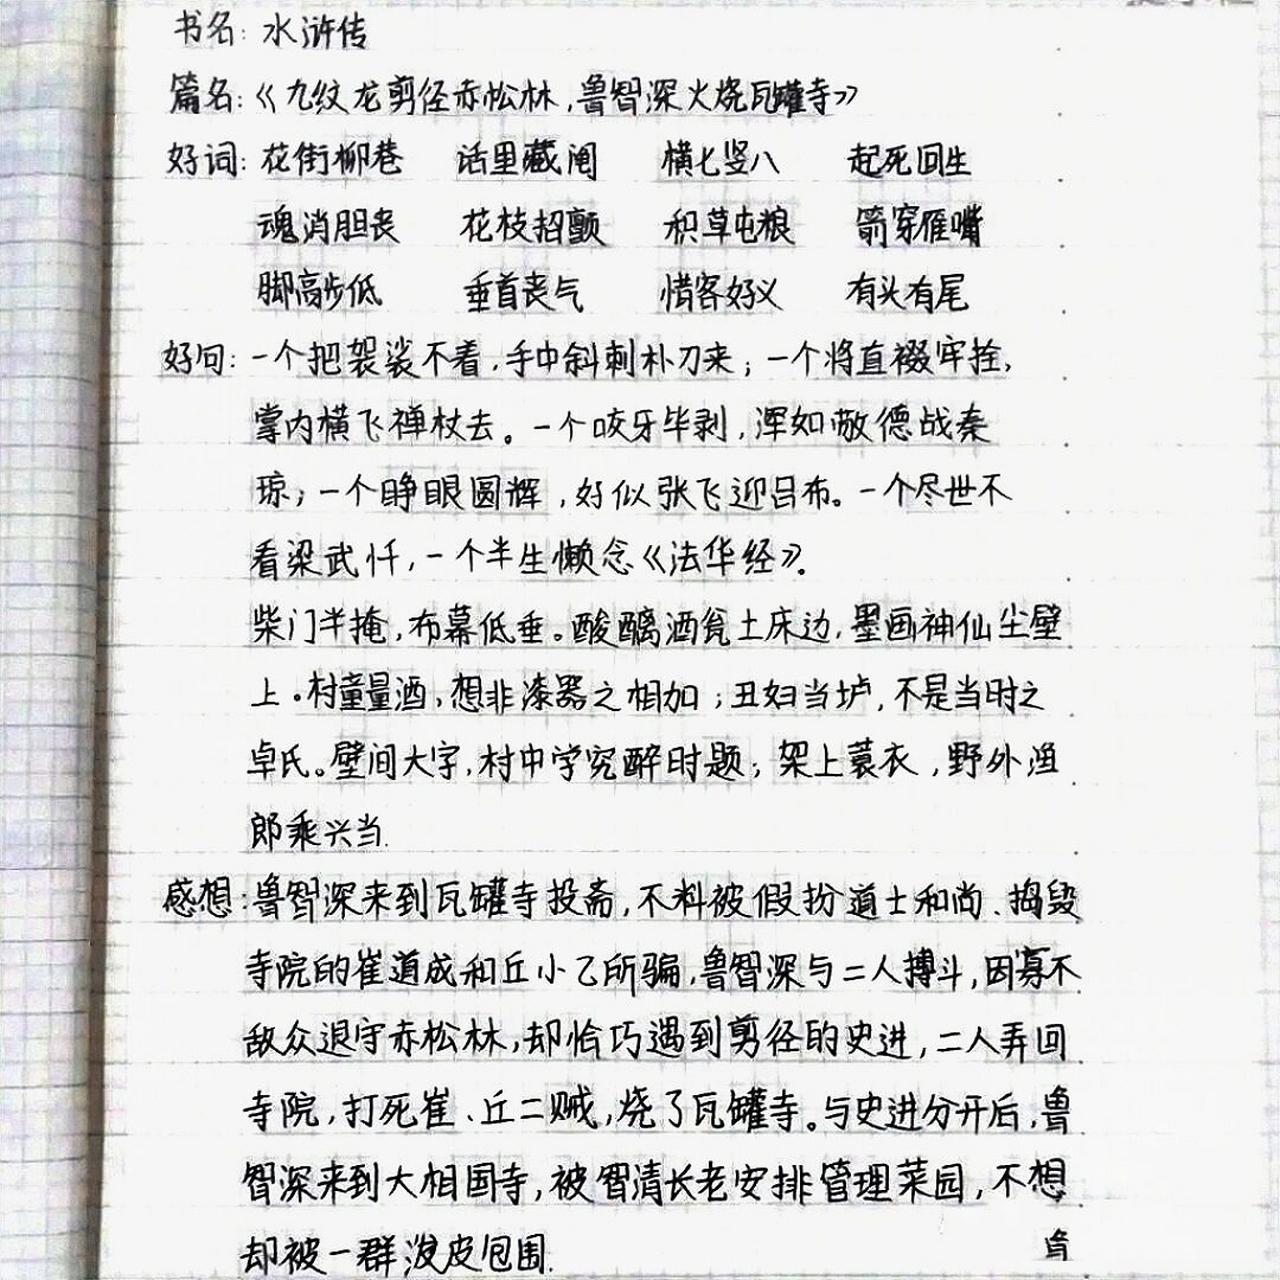 书名：水浒传
篇名：《九纹龙剪径赤松林，鲁智深火烧瓦罐寺》
好词：花街柳巷 话里藏阄 横七竖八 起死回生
魂消胆丧 花枝招颤 积草屯粮 箭穿雁嘴
脚高步低 垂首丧气 惜客好义 有头有尾
好句：一个把袈裟不着，手中斜刺朴刀来；一个将直裰牢拴，
掌内横飞禅杖去。一个咬牙毕剥，浑如敬德战秦
琼；一个睁眼圆辉，好似张飞迎吕布。一个尽世不
看梁武忏，一个半生懒念《法华经》。
柴门半掩，布幕低垂。酸醨酒瓮土床边，墨画神仙尘壁
上。村童量酒，想非漆器之相如；丑妇当垆，不是当时之
卓氏。壁间大字，村中学究醉时题；架上蓑衣，野外渔
郎乘兴当.
感想：鲁智深来到瓦罐寺投斋，不料被假扮道士和尚、捣毁
寺院的崔道成和丘小乙所骗，鲁智深与二人搏斗，因寡不
敌众退守赤松林，却恰巧遇到剪径的史进，二人弄回
寺院，打死崔、丘二贼，烧了瓦罐寺。与史进分开后，鲁
智深来到大相国寺，被智清长老安排管理菜园，不想
却被一群泼皮包围.